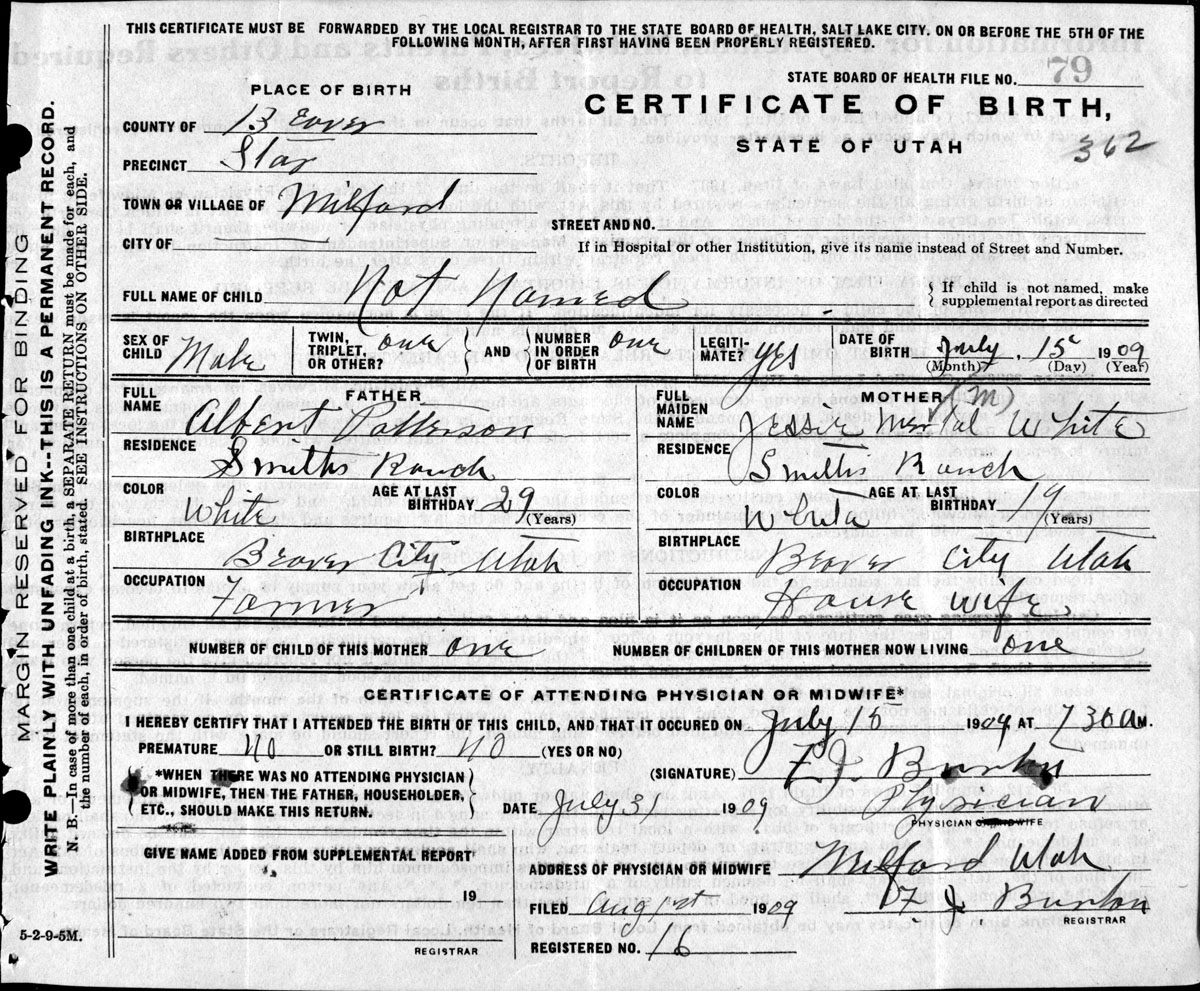 THIS CERTIFICATE MUST BE FORWARDED BY THE LOCAL REGISTRAR TO THE STATE BOARD OF HEALTH, SALT LAKE CITY. ON OR BEFORE THE 5TH OF THE
FOLLOWING MONTH, AFTER FIRST HAVING BEEN PROPERLY REGISTERED.
STATE BOARD OF HEALTH FILE NO. 79
PLACE OF BIRTH
CERTIFICATE OF BIRTH,
STATE OF UTAH
362
COUNTY OF Beaver
PRECINCT Star
TOWN OR VILLAGE OF Milford
STREET AND NO.
CITY OF
If in Hospital or other Institution, give its name instead of Street and Number.
FULL NAME OF CHILD Not Named
{ If child is not named, make
supplemental report as directed
SEX OF CHILD Male
TWIN, TRIPLET, OR OTHER? one } AND { NUMBER IN ORDER OF BIRTH one
LEGITI-MATE? yes
DATE OF BIRTH July 15 1909
(Month) (Day) (Year)
FATHER
FULL NAME Albert Patterson
RESIDENCE Smiths Ranch
COLOR White
AGE AT LAST BIRTHDAY 29 (Years)
BIRTHPLACE Beaver City Utah
OCCUPATION Farmer
MOTHER (M)
FULL MAIDEN NAME Jessie White
RESIDENCE Smiths Ranch
COLOR White
AGE AT LAST BIRTHDAY 19 (Years)
BIRTHPLACE Beaver City Utah
OCCUPATION House wife
NUMBER OF CHILD OF THIS MOTHER one
NUMBER OF CHILDREN OF THIS MOTHER NOW LIVING one
CERTIFICATE OF ATTENDING PHYSICIAN OR MIDWIFE*
I HEREBY CERTIFY THAT I ATTENDED THE BIRTH OF THIS CHILD, AND THAT IT OCCURED ON July 15 1909 AT 7 30 A M.
PREMATURE No OR STILL BIRTH? No (YES OR NO)
(SIGNATURE) F. J. Burton
*WHEN THERE WAS NO ATTENDING PHYSICIAN
OR MIDWIFE, THEN THE FATHER, HOUSEHOLDER,
ETC., SHOULD MAKE THIS RETURN.
DATE July 31 1909
Physician
PHYSICIAN OR MIDWIFE
GIVE NAME ADDED FROM SUPPLEMENTAL REPORT
ADDRESS OF PHYSICIAN OR MIDWIFE Milford Utah
19
FILED Aug 1st 1909 F J Burton
REGISTRAR
REGISTERED NO. 16
REGISTRAR
5-2-9-5M.
MARGIN RESERVED FOR BINDING
WRITE PLAINLY WITH UNFADING INK--THIS IS A PERMANENT RECORD.
N. B.—In case of more than one child at a birth, a SEPARATE RETURN must be made for each, and
the number of each, in order of birth, stated. SEE INSTRUCTIONS ON OTHER SIDE.